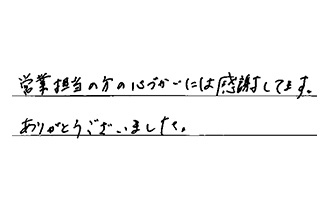 営業担当の方の心づかいには感謝してます。
ありがとうございました。